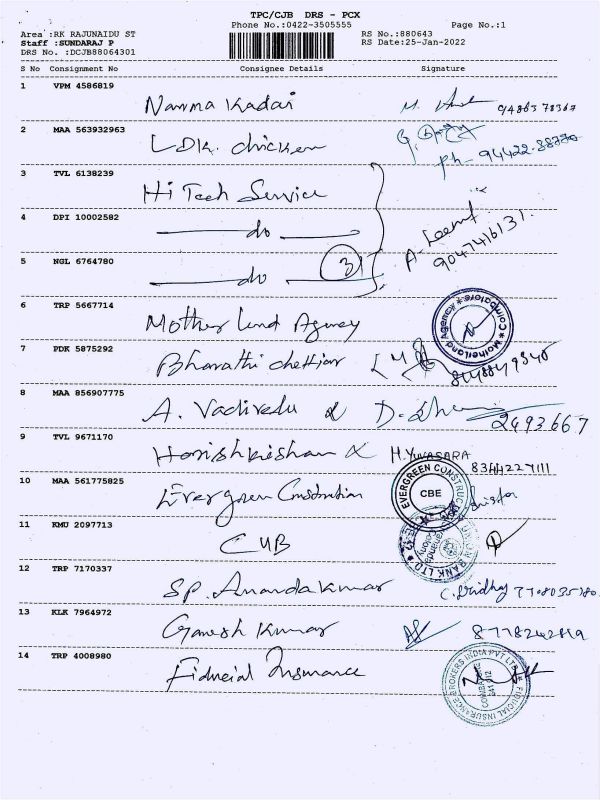 TPC/CJB DRS - PCX
Phone No.:0422-3505555 Page No.:1
Area :RK RAJUNAIDU ST RS No.:880643
Staff :SUNDARAJ P RS Date:25-Jan-2022
DRS No. :DCJB88064301
S No Consignment No Consignee Details Signature
1 VPM 4586819 Namma Kadai
2 MAA 563932963 LDK. chicken
3 TVL 6138239 Hi Tech Service
4 DPI 10002582 do
5 NGL 6764780 do 3
A. Leema 9047416131.
6 TRP 5667714 Mother Land Agency
Motherland Agency Coimbatore
7 PDK 5875292 Bharathi chettiar
8 MAA 856907775 A. Vadivelu 2493667
9 TVL 9671170 Harishkrishan H.YUVASARA 8344227111
10 MAA 561775825 Evergreen Construction
EVERGREEN CONSTRUC CBE
11 KMU 2097713 CUB
BANK LTD
12 TRP 7170337 SP. Ananda Kumar
13 KLK 7964972 Ganesh Kumar
14 TRP 4008980 Fiducial Insurance
FIDUCIAL INSURANCE BROKERS INDIA PVT LTD.